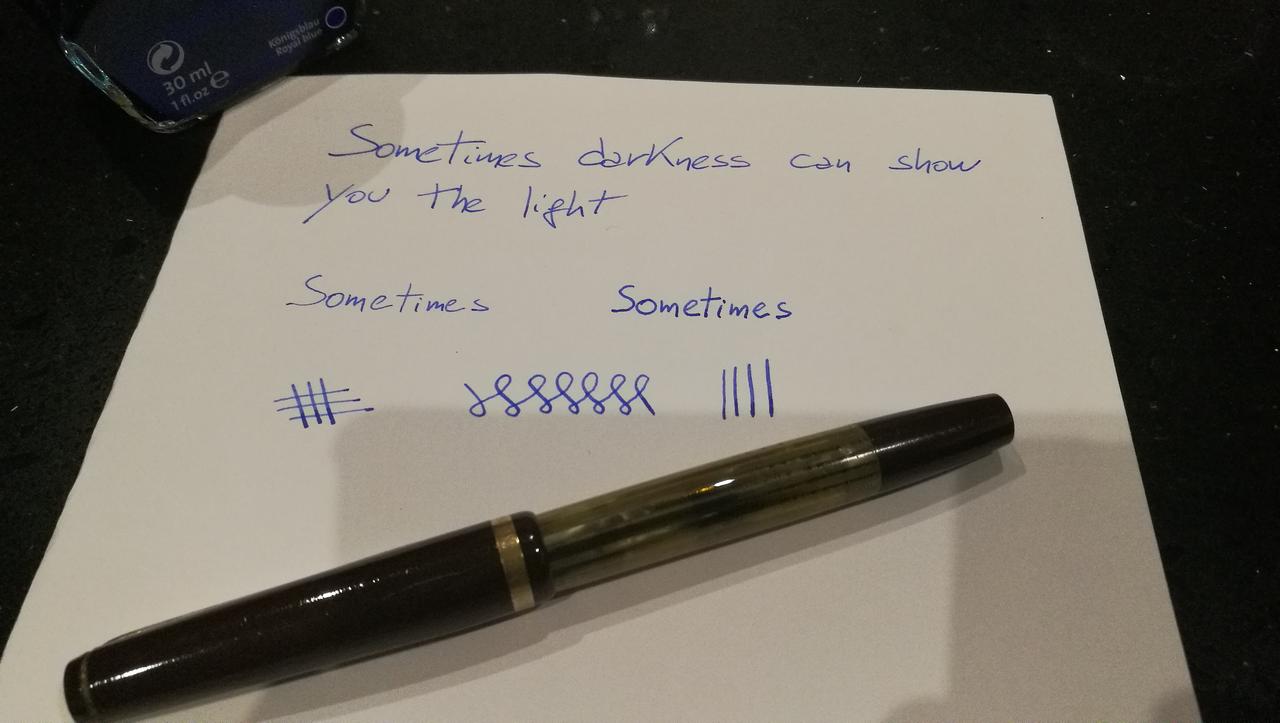 30 ml e
1 fl.oz
Königsblau
Royal blue
Sometimes darkness can show
you the light
Sometimes Sometimes